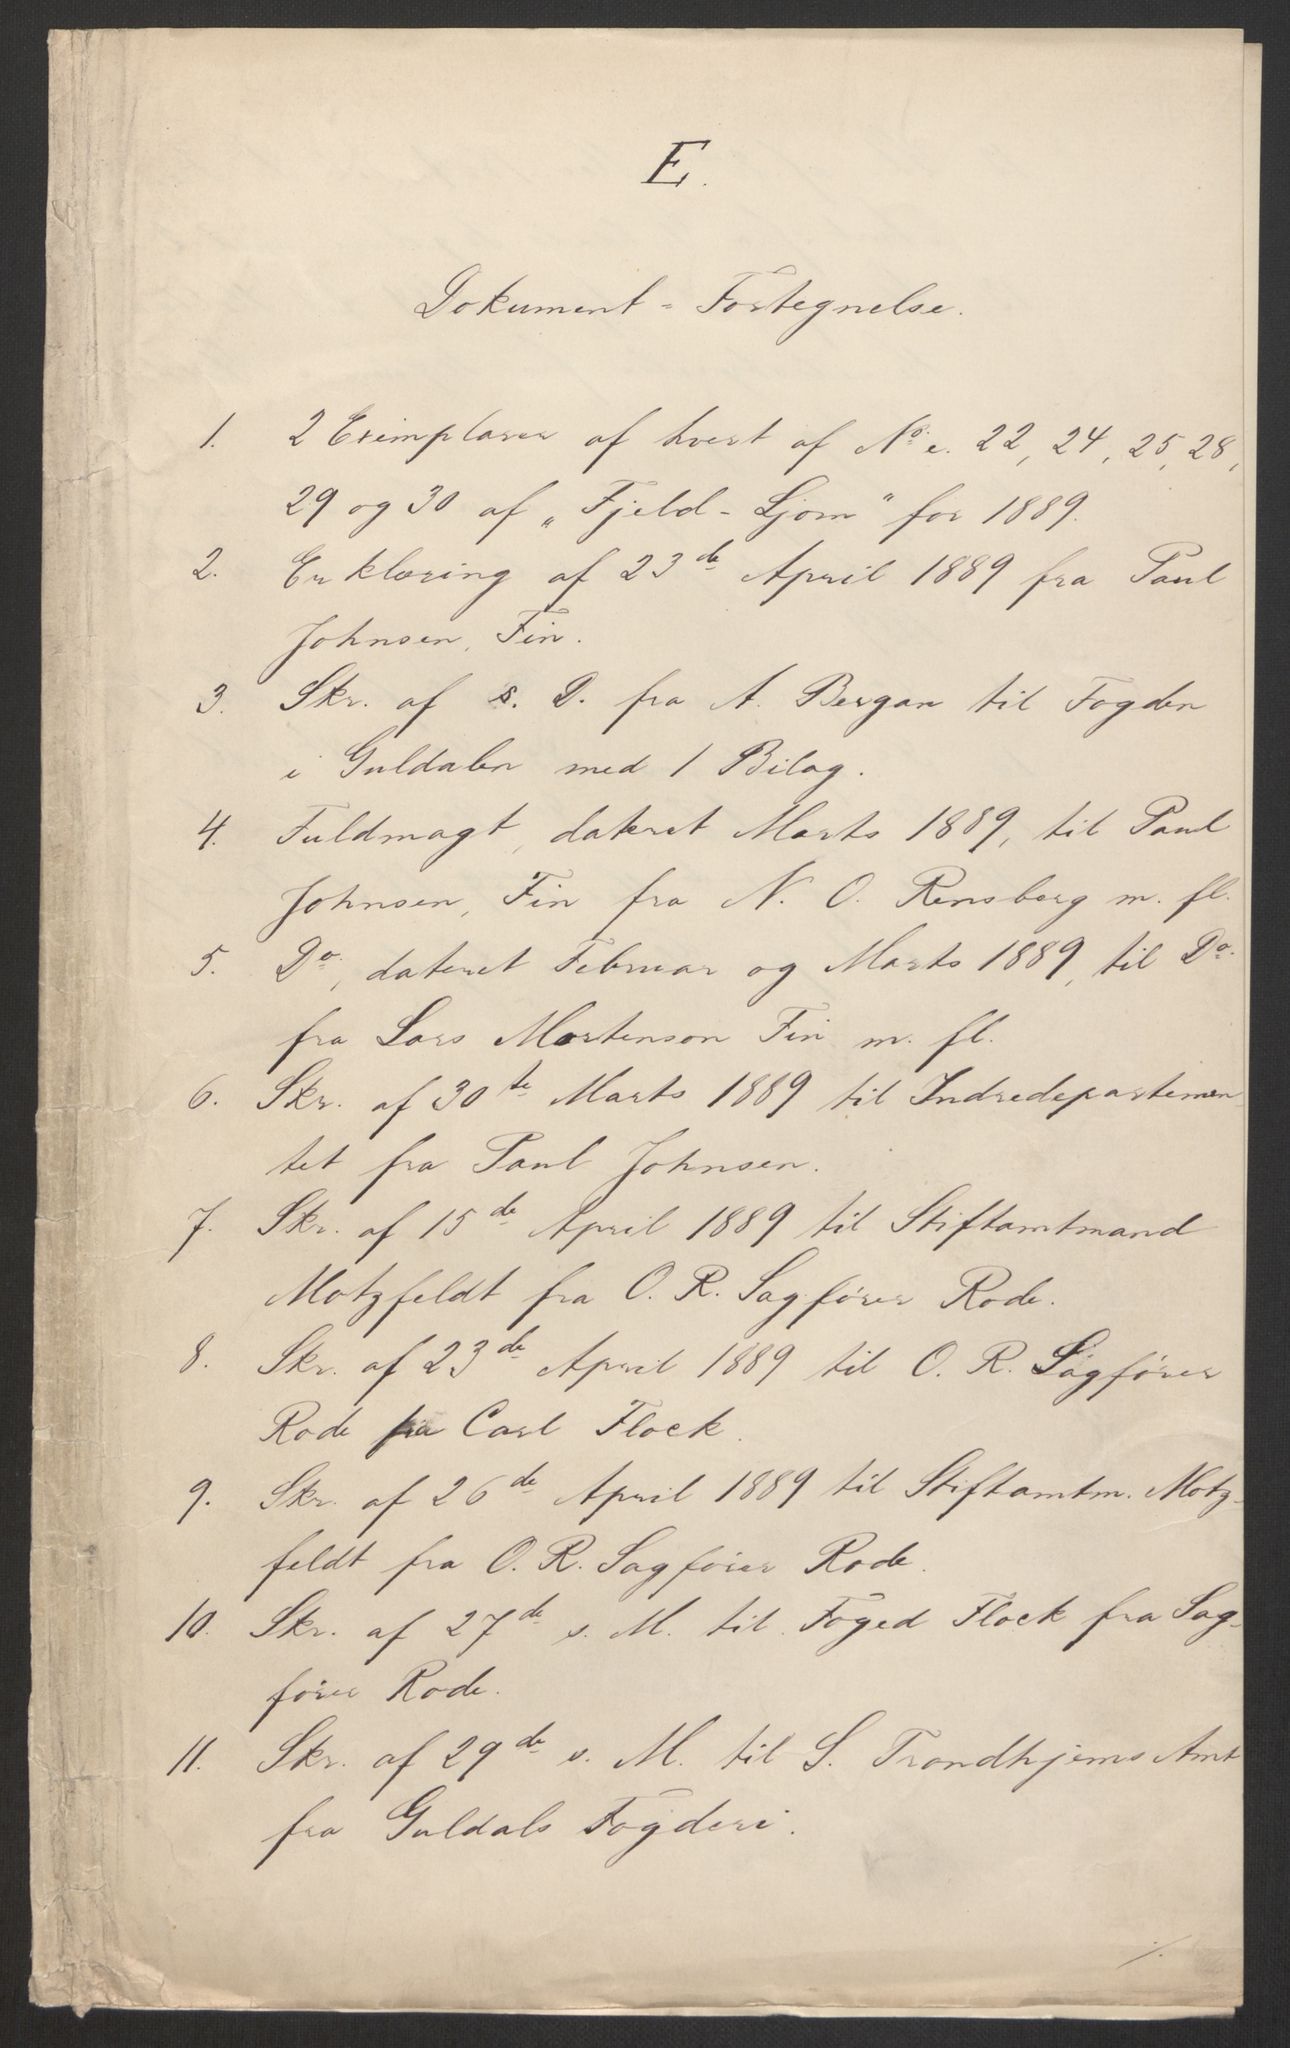 E.
Dokument-Fortegnelse.
1. 2 Exemplarer af hvert af No. e. 22, 24, 25, 28,
29 og 30 af "Fjeld-Ljom" for 1889.
2. Erklæring af 23de April 1889 fra Paul
Johnsen, Fin.
3. Skr. af s. D. fra A. Bergan til Fogden
i Guldalen med 1 Bilag.
4. Fuldmagt, dateret Marts 1889, til Paul
Johnsen, Fin fra N. O. Rensberg m. fl.
5. Do., dateret Februar og Marts 1889, til Do.
fra Lars Mortenson Fin m. fl.
6. Skr. af 30te Marts 1889 til Indredepartemen
tet fra Paul Johnsen.
7. Skr. af 15de April 1889 til Stiftamtmand
Motzfeldt fra O. R. Sagfører Rode.
8. Skr. af 23de April 1889 til O. R. Sagfører
Rode fra Carl Flock.
9. Skr. af 26de April 1889 til Stiftamtm. Motz-
feldt fra O. R. Sagfører Rode.
10. Skr. af 27de s. M. til Foged Flock fra Sag-
fører Rode.
11. Skr. af 29de s. M. til S. Trondhjems Amt
fra Guldals Fogderi.
./.